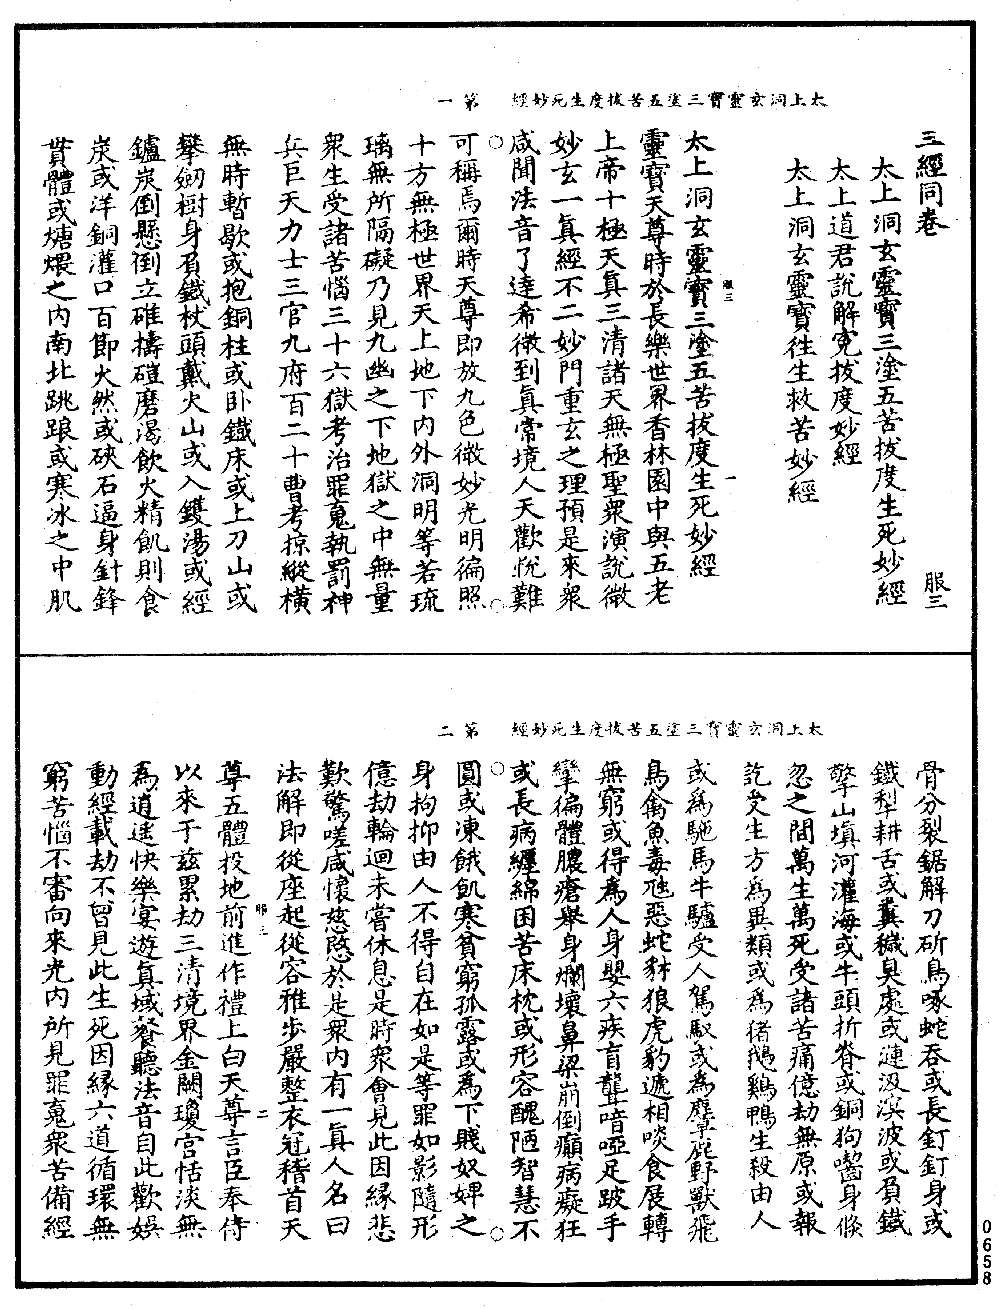 太上洞玄靈寶三塗五苦拔度生死妙經　第一
三經同卷　服三
太上洞玄靈寶三塗五苦拔度生死妙經
太上道君說解冤拔度妙經
太上洞玄靈寶往生救苦妙經
服三　一
太上洞玄靈寶三塗五苦拔度生死妙經
靈寶天尊時於長樂世界香林園中與五老
上帝十極天真三清諸天無極聖衆演說微
妙玄一真經不二妙門重玄之理預是來衆
咸聞法音了達希微到真常境人天歡悅難
可稱焉爾時天尊即放九色微妙光明徧照
十方無極世界天上地下內外洞明等若琉
璃無所隔礙乃見九幽之下地獄之中無量
衆生受諸苦惱三十六獄考治罪䰟執罰神
兵巨天力士三官九府百二十曹考掠縱橫
無時暫歇或抱銅柱或卧鐵床或上刀山或
攀劒樹身負鐵杖頭戴火山或入鑊湯或經
鑪炭倒懸倒立碓擣磑磨渴飲火精飢則食
炭或洋銅灌口百節火然或硤石逼身針鋒
貫體或煻煨之內南北跳踉或寒冰之中肌
太上洞玄靈寶三塗五苦拔度生死妙經　第二
骨分裂鋸解刀斫鳥啄蛇吞或長釘釘身或
鐵犁耕舌或糞穢臭處或漣汲溟波或負鐵
擎山塡河灌海或牛頭折脊或銅狗嚙身倐
忽之間萬生萬死受諸苦痛億劫無原或報
訖受生方為異類或為猪鵝鷄鴨生殺由人
或為駞馬牛驢受人駕馭或為麞鹿野獸飛
鳥禽魚毒虺惡蛇豺狼虎豹遞相啖食展轉
無窮或得為人身嬰六疾盲聾喑啞足跛手
攣徧體膿瘡舉身爛壞鼻梁崩倒癲病癡狂
或長病纏綿困苦床枕或形容醜陋智慧不
圓或凍餓飢寒貧窮孤露或為下賤奴婢之
身拘抑由人不得自在如是等罪如影隨形
億劫輪迴未嘗休息是時衆會見此因緣悲
歎驚嗟咸懷慈愍於是衆內有一真人名曰
法解即從座起從容雅步嚴整衣冠稽首天
服三　二
尊五體投地前進作禮上白天尊言臣奉侍
以來于兹累劫三清境界金闕瓊宮恬淡無
為逍遥快樂宴遊真域飡聽法音自此歡娛
動經載劫不曾見此生死因緣六道循環無
窮苦惱不審向來光內所見罪䰟衆苦備經
0658